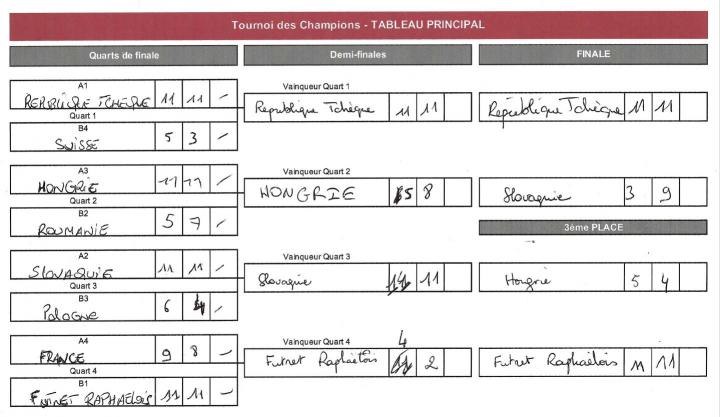 Tournoi des Champions - TABLEAU PRINCIPAL
Quarts de finale
Demi-finales
FINALE
A1
REPUBLIQUE TCHEQUE 11 11 -
Quart 1
B4
SUISSE 5 3 -
Vainqueur Quart 1
République Tchèque 11 11
République Tchèque 11 11
A3
HONGRIE 11 11 -
Quart 2
B2
ROUMANIE 5 7 -
Vainqueur Quart 2
HONGRIE 5 8
Slovaquie 3 9
3ème PLACE
A2
SLOVAQUIE 11 11 -
Quart 3
B3
Pologne 6 4 -
Vainqueur Quart 3
Slovaquie 11 11
Hongrie 5 4
A4
FRANCE 9 8 -
Quart 4
B1
FUTNET RAPHAELOIS 11 11 -
Vainqueur Quart 4
Futnet Raphaëlois 4 2
Futnet Raphaëlois 11 11